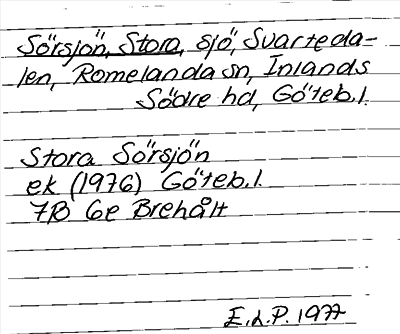 Sörsjön, Stora, sjö, Svarteda-
len, Romelanda sn, Inlands
Södre hd, Göteb.l.
Stora Sörsjön
ek (1976) Göteb.l.
7B 6e Brehålt
E.L.P. 1977